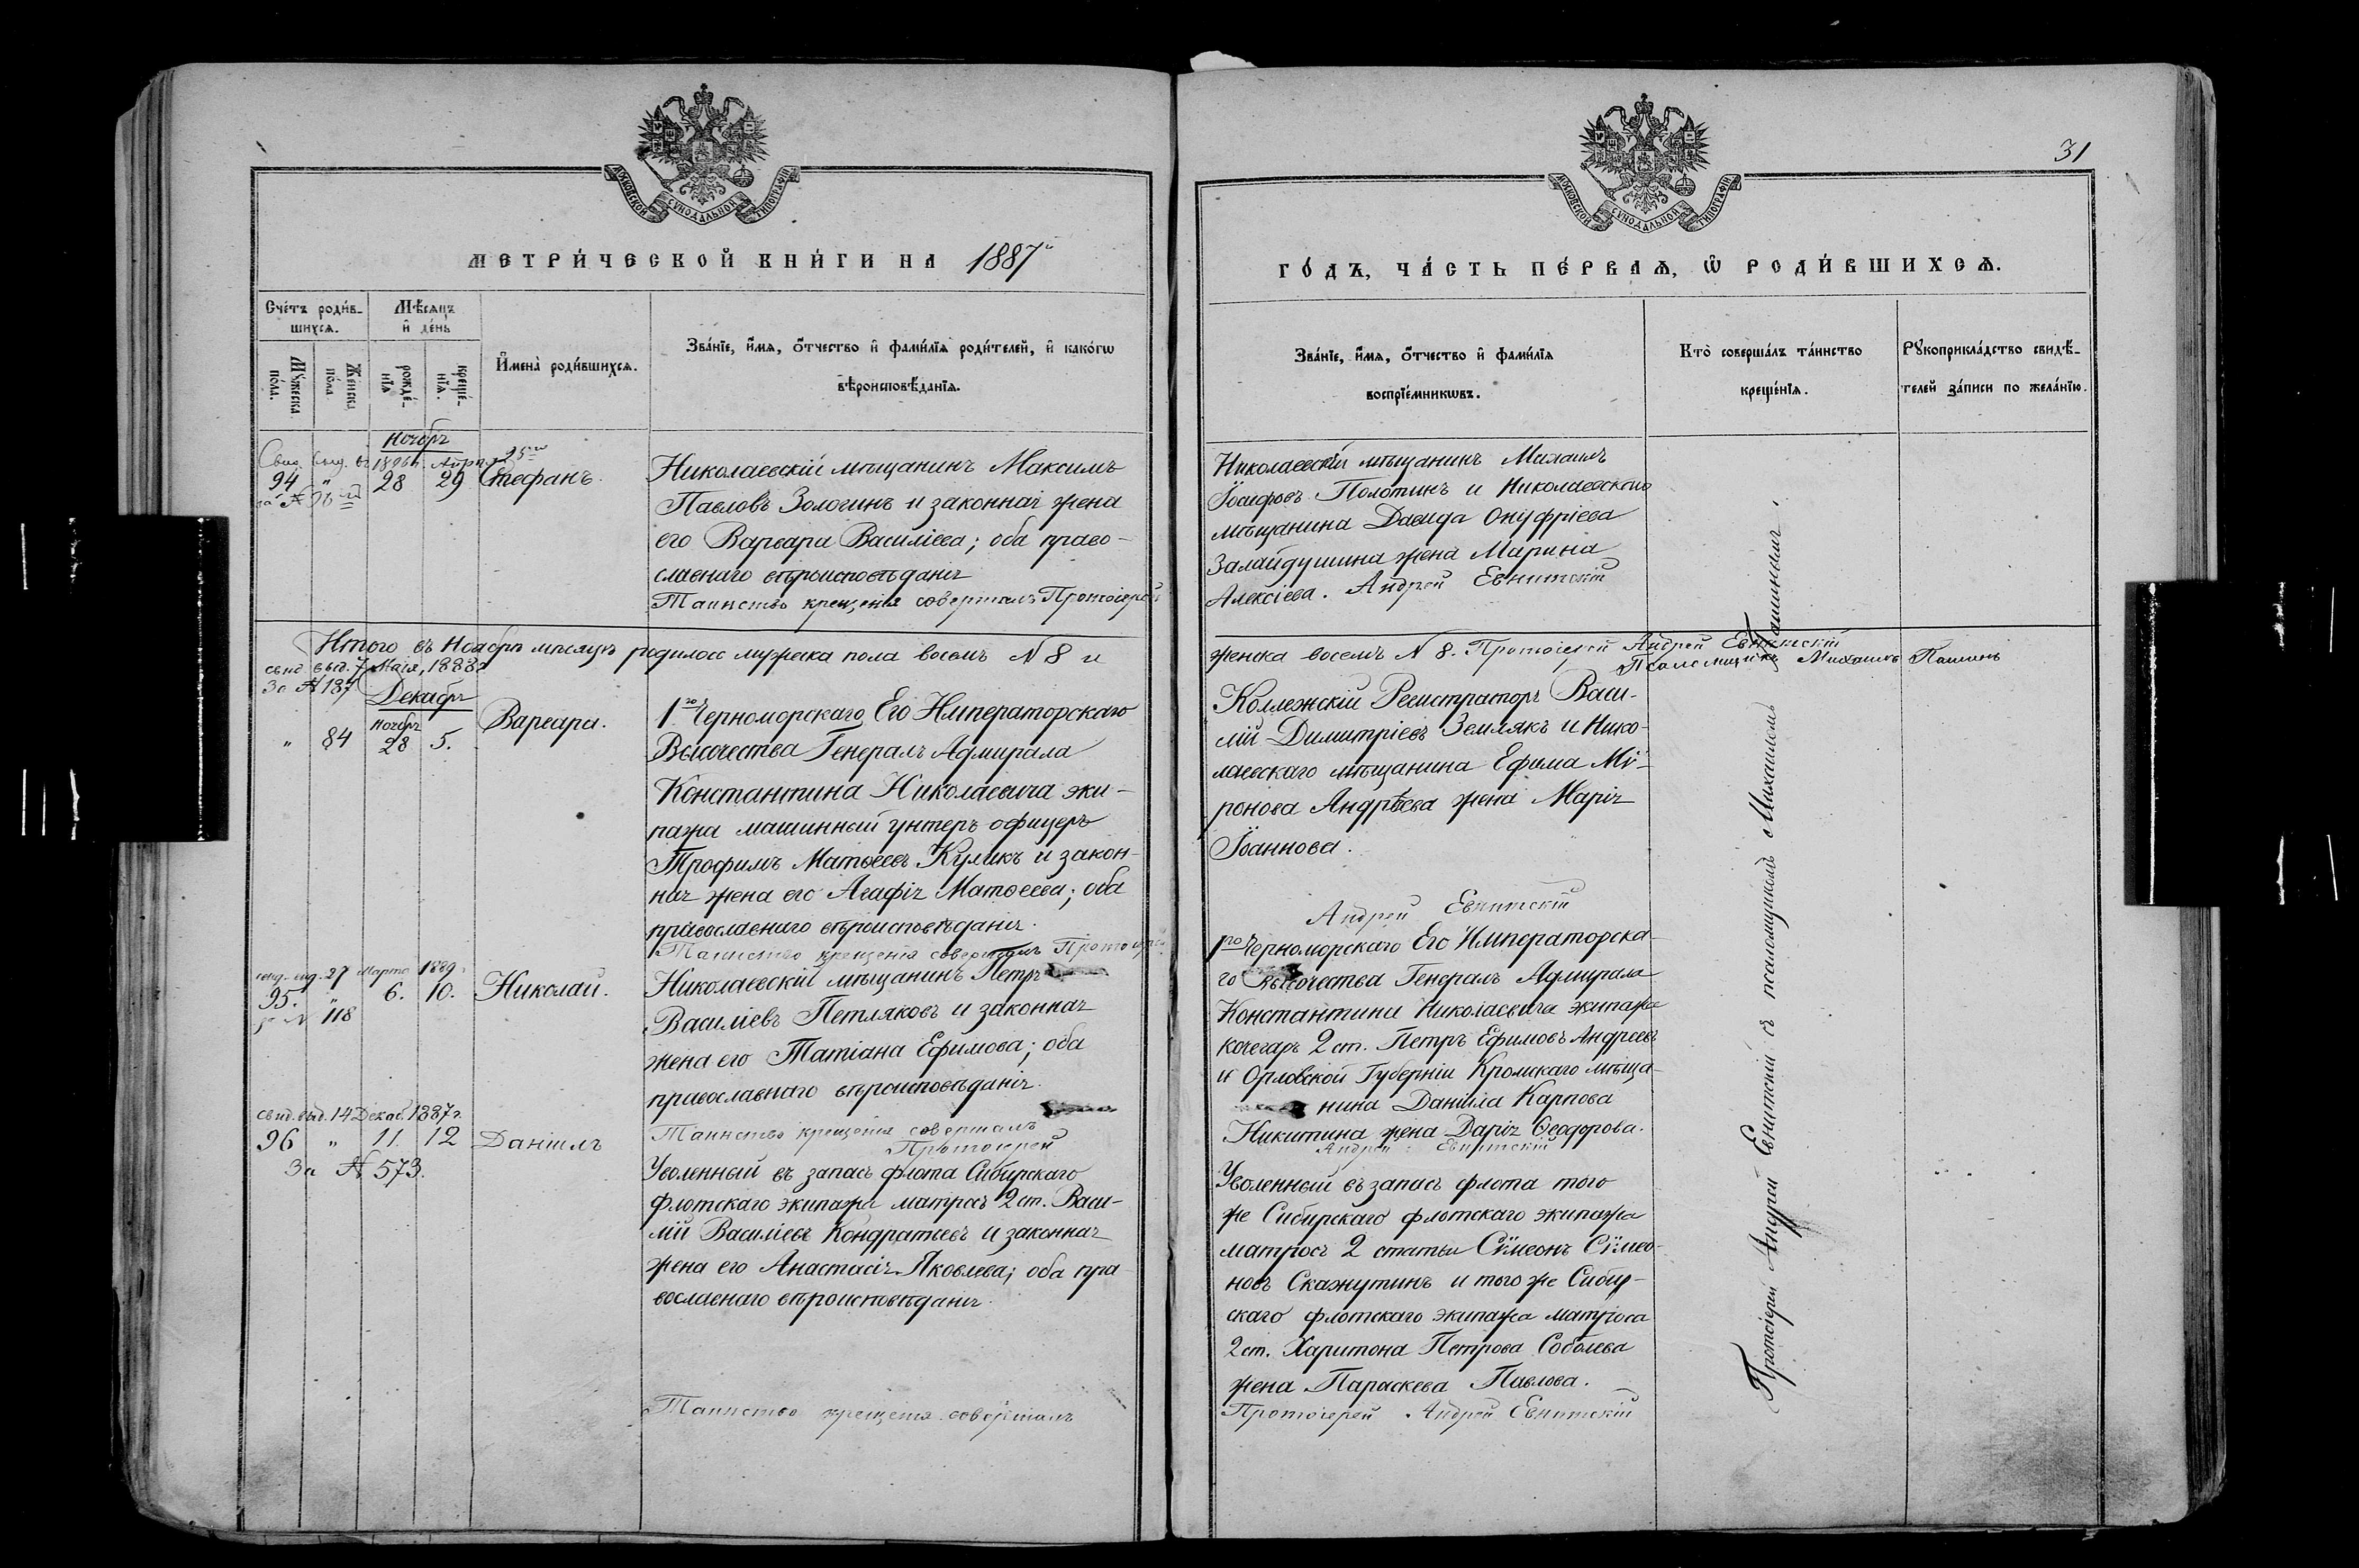 МОСКОВСКОЙ СѴНОДАЛЬНОЙ ТИПОГРАФІИ
МЕТРИ́ЧЕСКОЙ КНИ́ГИ НА 1887й
Счетъ роди́в-
шихсѧ.
Мѣсяцъ
и҆ де́нь
Мꙋжеска
по́ла.
Женска
по́ла
рожде́-
нїѧ
креще́-
нїѧ.
И҆мена̀ роди́вшихсѧ.
Зва́нїе, и҆́мѧ, ѻ҆́тчество и҆ фами́лїѧ роди́телей, и҆ како́гѡ
вѣроисповѣ́данїѧ.
Ноябрь
Свид. выд. въ 1896 г. Апр. 25го
94 " 28 29 Стефанъ.
за № 96й
Николаевскій мѣщанинъ Максимъ
Павловъ Зологинъ и законная жена
его Варвара Василіева; оба право-
славнаго вѣроисповѣданія
Таинство крещенія совершалъ Протоіерей
Итого въ Ноябрѣ мѣсяцѣ родилось мужеска пола восемь № 8 и
свид. выд. 7 Мая, 1888 г
За № 187
Декабрь
Ноябрь
" 84 28 5. Варвара.
1го Черноморскаго Его Императорскаго
Высочества Генералъ Адмирала
Константина Николаевича эки-
пажа машинный унтеръ офицеръ
Трофимъ Матѳеевъ Куликъ и закон-
ная жена его Агафія Матѳеева; оба
православнаго вѣроисповѣданія.
Таинство крещенія совершалъ Протоіерей
свид. выд. 27 Марта 1889
95. " 6. 10. Николай.
за № 118
Николаевскій мѣщанинъ Петръ
Василіевъ Петляковъ и законная
жена его Татіана Ефимова; оба
православнаго вѣроисповѣданія.
Таинство крещенія совершалъ
Протоіерей
свид. выд. 14 Декаб. 1887 г.
96 " 11. 12 Даніилъ
За № 573.
Уволенный въ запасъ флота Сибирскаго
флотскаго экипажа матросъ 2 ст. Васи-
лій Василіевъ Кондратьевъ и законная
жена его Анастасія Яковлева; оба пра-
вославнаго вѣроисповѣданія.
Таинство крещенія совершалъ
31
МОСКОВСКОЙ СѴНОДАЛЬНОЙ ТИПОГРАФІИ
ГО́ДЪ, ЧА́СТЬ ПЕ́РВАѦ, Ѽ РОДИ́ВШИХСѦ.
Зва́нїе, и҆́мѧ, ѻ҆́тчество и҆ фами́лїѧ
воспрїе́мникѡвъ.
Кто̀ соверша́лъ та́инство
креще́нїѧ.
Рꙋкоприкла́дство свидѣ́-
телей за́писи по жела́нїю.
Николаевскій мѣщанинъ Михаилъ
Іосифовъ Полотинъ и Николаевскаго
мѣщанина Давида Онуфріева
Залайдушина жена Марина
Алексіева. Андрей Евнитскій
женска восемь № 8. Протоіерей Андрей Евнитскій
Псаломщикъ Михаилъ Пашинъ
Коллежскій Регистраторъ Васи-
лій Димитріевъ Землякъ и Нико-
лаевскаго мѣщанина Ефима Мѵ-
ронова Андрѣева жена Марія
Іоаннова.
Андрей Евнитскій
1го Черноморскаго Его Императорска-
го Высочества Генералъ Адмирала
Константина Николаевича экипажа
кочегаръ 2 ст. Петръ Ефимовъ Андреевъ
и Орловской Губерніи Кромскаго мѣща-
нина Даніила Карпова
Никитина жена Дарія Ѳеодорова.
Андрей Евнитскій
Уволенный въ запасъ флота того
же Сибирскаго флотскаго экипажа
матросъ 2 статьи Сѵмеонъ Сѵмео-
новъ Скажутинъ и того же Сибир-
скаго флотскаго экипажа матроса
2 ст. Харитона Петрова Соболева
жена Параскева Павлова.
Протоіерей Андрей Евнитскій
Протоіерей Андрей Евнитскій съ псаломщикомъ Михаиломъ Пашинымъ.